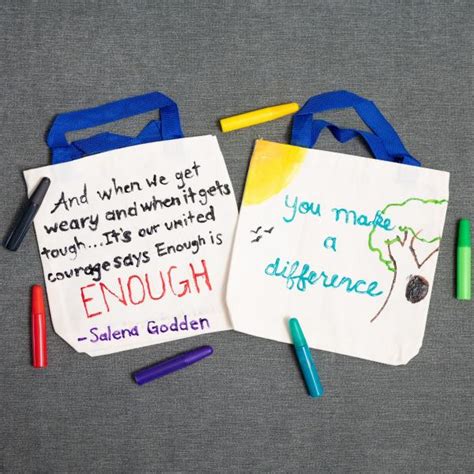 And when we get
weary and when it gets
tough...It's our united
courage says Enough is
ENOUGH
-Salena Godden
You make
a
difference